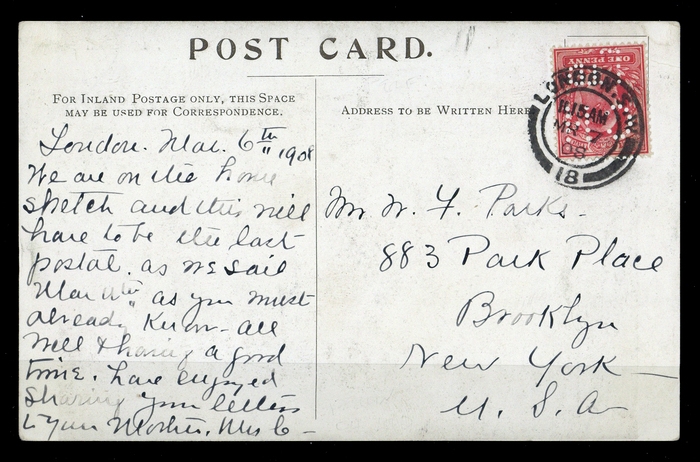 POST CARD.
FOR INLAND POSTAGE ONLY, THIS SPACE
MAY BE USED FOR CORRESPONDENCE.
ADDRESS TO BE WRITTEN HERE
ONE PENNY
LONDON. W
11.15 AM
MR 7
08
18
London. Mar. 6th 1908
We are on the home
stretch and this will
have to be the last
postal. as we sail
Mar 11th as you must
already know - all
well & having a good
time. have enjoyed
sharing your letters
to your Mother, Mrs C -
Mr W. F. Parks -
883 Park Place
Brooklyn
New York -
U. S. A -